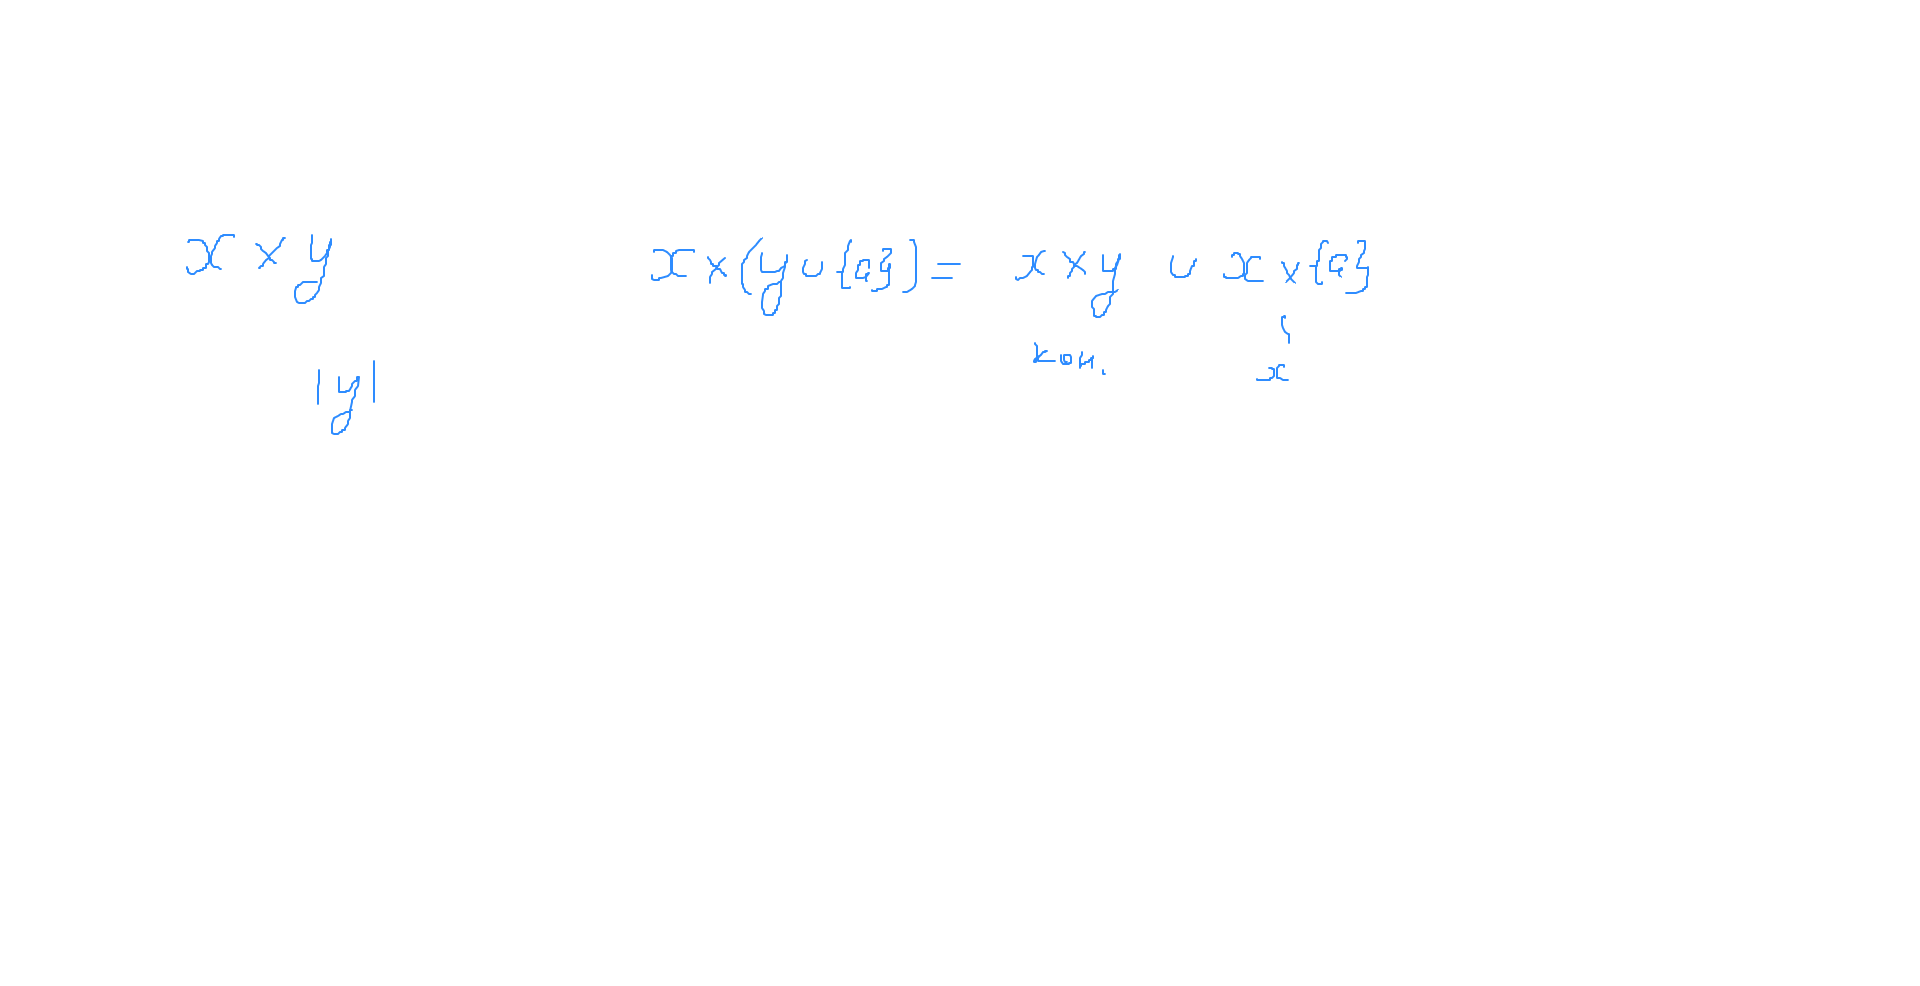 x × y
x × (y ∪ {a}) = x × y ∪ x × {a}
кон.
x
|y|